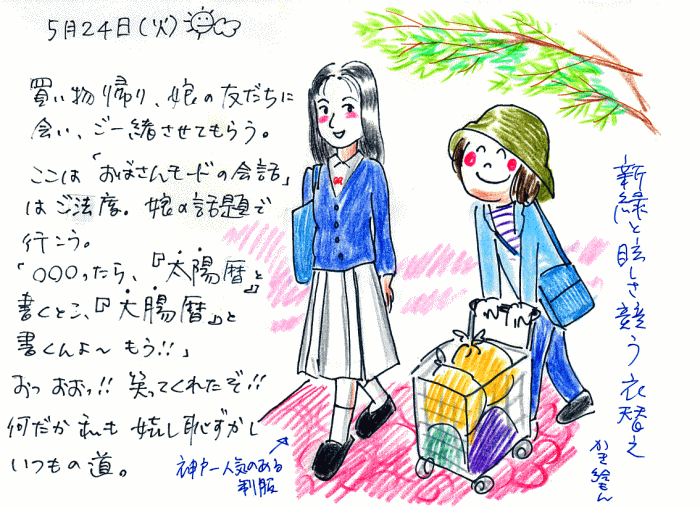 5月24日(火)
買い物帰り、娘の友だちに
会い、ご一緒させてもらう。
ここは「おばさんモードの会話」
はご法度。娘の話題で
行こう。
「〇〇〇ったら、『太陽暦』と
書くとこ、『大腸暦』と
書くんよ〜もう!!」
おっおおっ!!笑ってくれたぞ!!
何だか私も嬉し恥ずかし
いつもの道。
神戸一人気のある
制服
新緑と眩しさ競う衣替え
かき絵もん